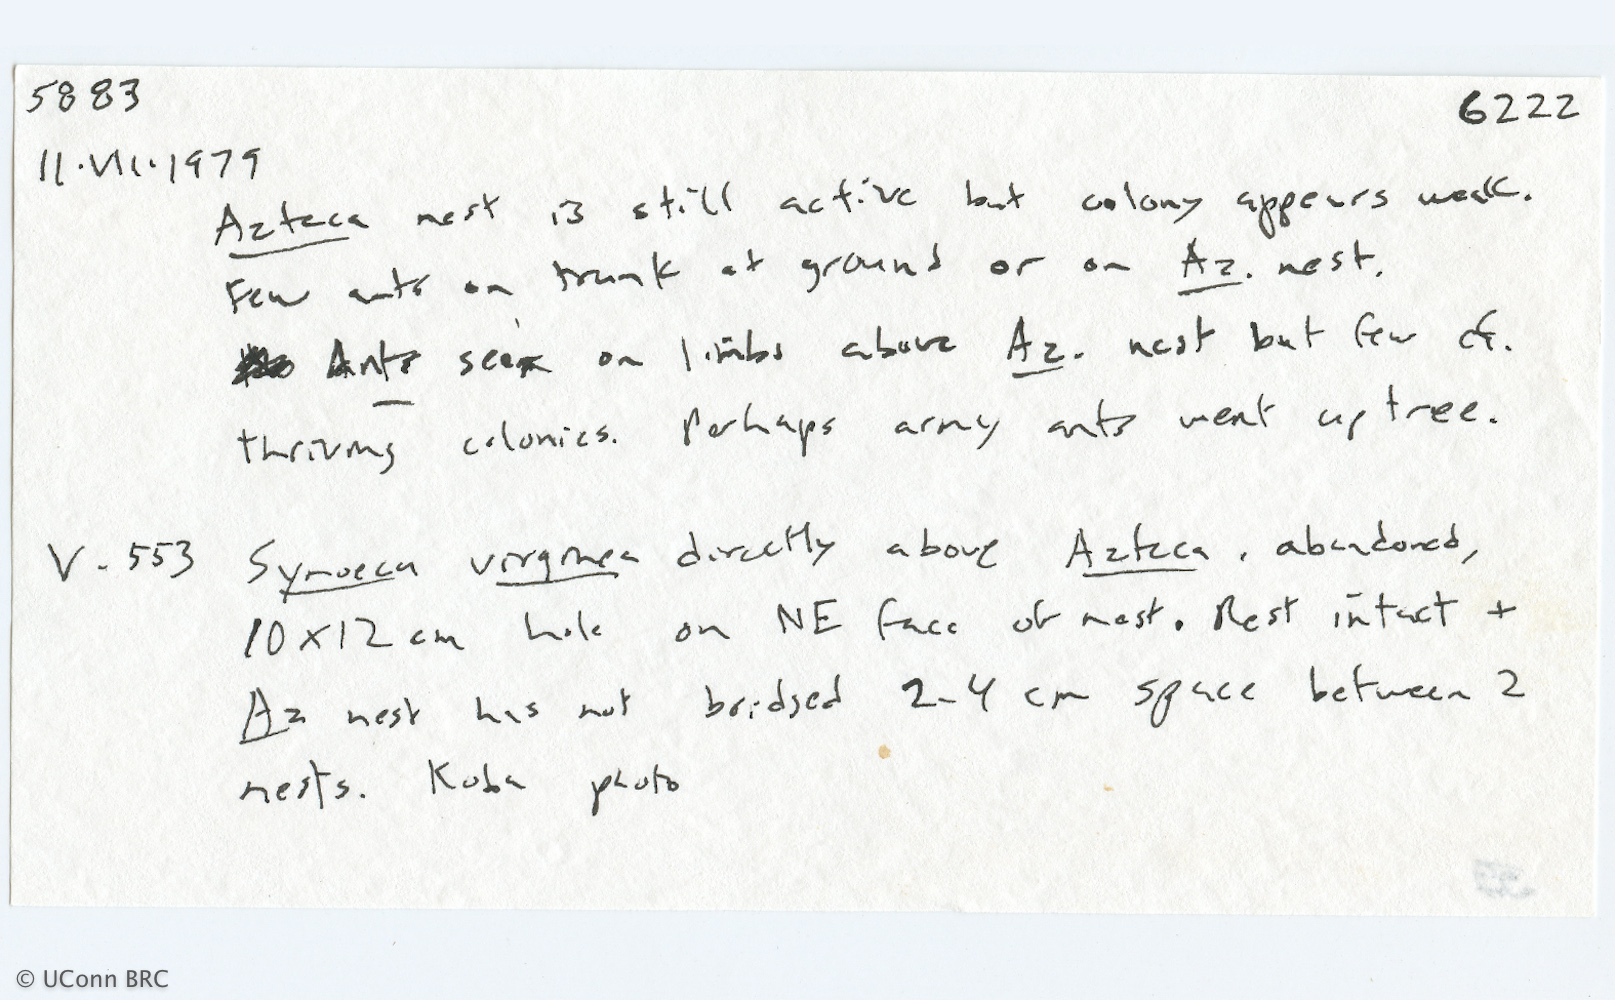 5883 6222
11.VII.1979
Azteca nest is still active but colony appears weak.
Few ants on trunk at ground or on Az. nest.
Ants seen on limbs above Az. nest but few cf.
thriving colonies. Perhaps army ants went up tree.
V-553 Synoeca virginea directly above Azteca, abandoned,
10x12 cm hole on NE face of nest. Rest intact +
Az nest has not bridged 2-4 cm space between 2
nests. Koba photo
© UConn BRC